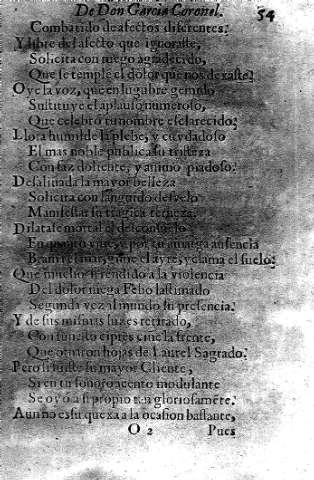 De Don Garcia Coronel. 54
Combatido de afectos diferentes?
Y libre del afecto que ignoraste,
Solicita con ruego agradecido,
Que se temple el dolor que nos dexaste?
Oye la voz, que en lugubre gemido
Sustituye el aplauso numeroso,
Que celebrò tu nombre esclarecido:
Llora humilde la plebe, y cuydadoso
El mas noble publica su tristeza
Con faz doliente, y animo piadoso:
Desaliñada la mayor belleza
Solicita con languido desvelo
Manifestar su tragica terneza:
Dilatase mortal el desconsuelo
En quanto viue, y por tu amarga ausencia
Brama el mar, gime el ayre, y clama el suelo:
Que mucho si rendido a la violencia
Del dolor niega Febo lastimado
Segunda vez al mundo su presencia:
Y de sus mismas luzes retirado,
Con funesto cipres ciñe la frente,
Que ornaron hojas de Laurel Sagrado.
Pero si fuiste su mayor Cliente,
Si en tu sonoro acento modulante
Se oyò a si propio tan gloriosamẽte:
Aun no es su quexa a la ocasion bastante,
O 2 Pues